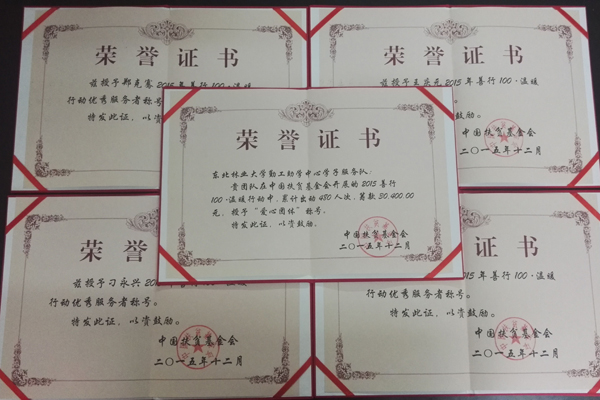 荣誉证书
兹授予郑克寒2015年善行100·温暖
行动优秀服务者称号
特发此证，以资
荣誉证书
兹授予王庆元2015年善行100·温暖
鼓励。
中国扶贫基金会
二〇一五年十二月
荣誉证书
东北林业大学勤工助学中心学子服务队：
贵团队在中国扶贫基金会开展的2015善行
100·温暖行动中，累计出动450人次，筹款30,400.00
元。授予“爱心团体”称号。
特发此证，以资鼓励。
中国扶贫基金会
二〇一五年十二月
荣誉证
兹授予刁永兴20
行动优秀服务者称号。
特发此证，以资鼓励。
中国扶贫基金会
二〇一五年十二月
证书
5年善行100·温暖
行动优秀服务者称号。
特发此证，以资鼓励。
中国扶贫基金会
二〇一五年十二月